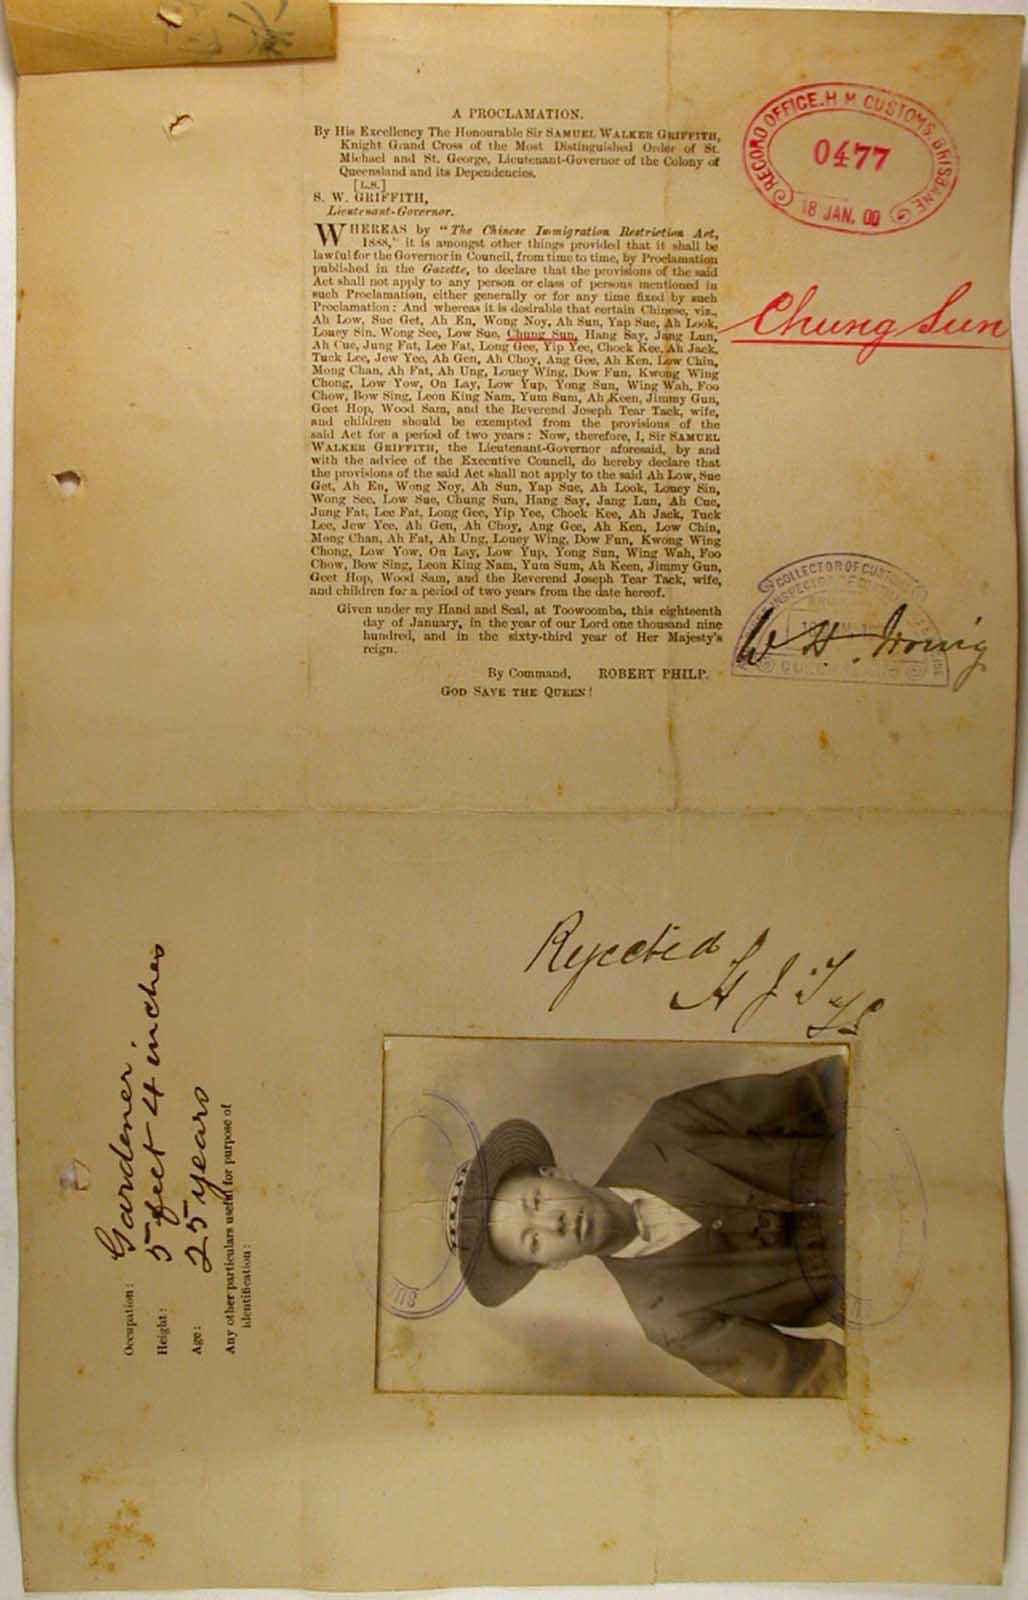 A PROCLAMATION.
By His Excellency The Honourable Sir SAMUEL WALKER GRIFFITH,
Knight Grand Cross of the Most Distinguished Order of St.
Michael and St. George, Lieutenant-Governor of the Colony of
Queensland and its Dependencies.
[L.S.]
S. W. GRIFFITH,
Lieutenant-Governor.
WHEREAS by "The Chinese Immigration Restriction Act,
1888," it is amongst other things provided that it shall be
lawful for the Governor in Council, from time to time, by Proclamation
published in the Gazette, to declare that the provisions of the said
Act shall not apply to any person or class of persons mentioned in
such Proclamation, either generally or for any time fixed by such
Proclamation: And whereas it is desirable that certain Chinese, viz.,
Ah Low, Sue Get, Ah En, Wong Noy, Ah Sun, Yap Sue, Ah Look,
Louey Sin, Wong See, Low Sue, Chung Sun, Hang Say, Jang Lun,
Ah Cue, Jung Fat, Lee Fat, Long Gee, Yip Yee, Chock Kee, Ah Jack,
Tuck Lee, Jew Yee, Ah Gen, Ah Choy, Ang Gee, Ah Ken, Low Chin,
Mong Chan, Ah Fat, Ah Ung, Louey Wing, Dow Fun, Kwong Wing
Chong, Low Yow, On Lay, Low Yup, Yong Sun, Wing Wah, Foo
Chow, Bow Sing, Leon King Nam, Yum Sum, Ah Keen, Jimmy Gun,
Geet Hop, Wood Sam, and the Reverend Joseph Tear Tack, wife,
and children should be exempted from the provisions of the
said Act for a period of two years: Now, therefore, I, Sir SAMUEL
WALKER GRIFFITH, the Lieutenant-Governor aforesaid, by and
with the advice of the Executive Council, do hereby declare that
the provisions of the said Act shall not apply to the said Ah Low, Sue
Get, Ah En, Wong Noy, Ah Sun, Yap Sue, Ah Look, Louey Sin,
Wong See, Low Sue, Chung Sun, Hang Say, Jang Lun, Ah Cue,
Jung Fat, Lee Fat, Long Gee, Yip Yee, Chock Kee, Ah Jack, Tuck
Lee, Jew Yee, Ah Gen, Ah Choy, Ang Gee, Ah Ken, Low Chin,
Mong Chan, Ah Fat, Ah Ung, Louey Wing, Dow Fun, Kwong Wing
Chong, Low Yow, On Lay, Low Yup, Yong Sun, Wing Wah, Foo
Chow, Bow Sing, Leon King Nam, Yum Sum, Ah Keen, Jimmy Gun,
Geet Hop, Wood Sam, and the Reverend Joseph Tear Tack, wife,
and children for a period of two years from the date hereof.
Given under my Hand and Seal, at Toowoomba, this eighteenth
day of January, in the year of our Lord one thousand nine
hundred, and in the sixty-third year of Her Majesty's
reign.
By Command, ROBERT PHILP.
GOD SAVE THE QUEEN!
RECORD OFFICE. H. M. CUSTOMS BRISBANE
0477
18 JAN. 00
Chung Sun
COLLECTOR OF CUSTOMS
W. H. Irving
Rejected
Occupation: Gardener.
Height: 5 feet 4 inches
Age: 25 years
Any other particulars useful for purpose of
identification: